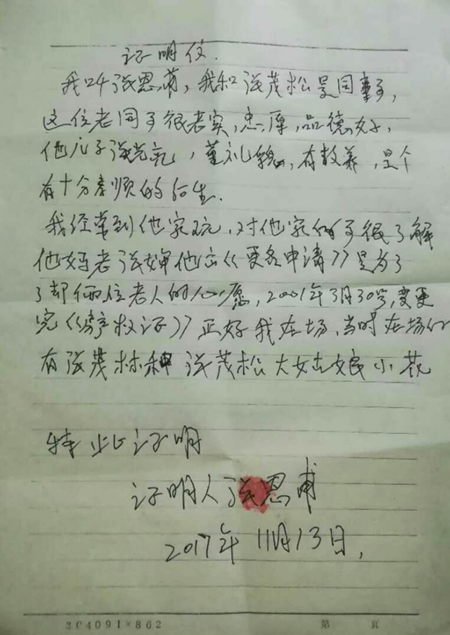 证明仪.
我叫张恩甫，我和张茂松是同事，
这位老同事很老实，忠厚，品德好，
他儿子张光乾，董礼貌，有教养，是个
有十分孝顺的后生.
我经常到他家玩，对他家的事很了解
他妈老张婶他立《更名申请》是为了
了却俩位老人的心愿，2001年3月30号，变更
完《房产权证》正好我在场，当时在场的
有张茂林和张茂松大女娘小花
特此证明
证明人张恩甫
2017年11月13日，
304091×862 第 页